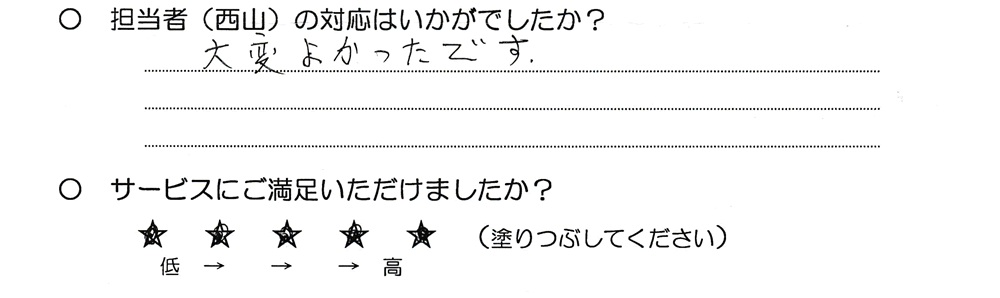 ○ 担当者（西山）の対応はいかがでしたか？
大変よかったです.
○ サービスにご満足いただけましたか？
★ ★ ★ ★ ★ （塗りつぶしてください）
低 → → → 高